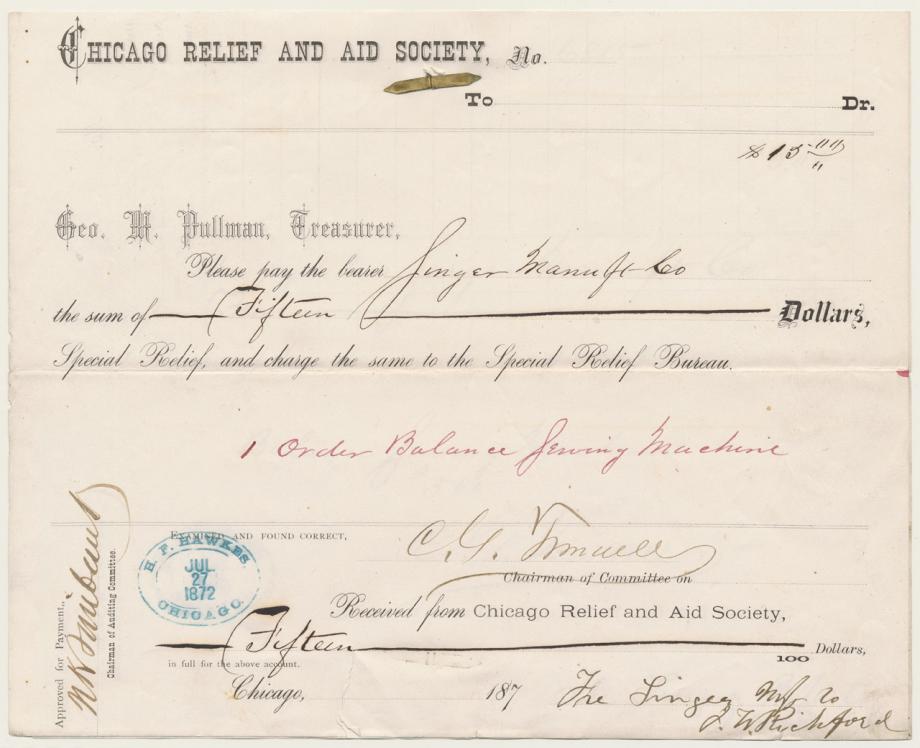 CHICAGO RELIEF AND AID SOCIETY, No.
To Dr.
$15
Geo. M. Pullman, Treasurer,
Please pay the bearer Singer Manuft Co
the sum of Fifteen Dollars,
Special Relief, and charge the same to the Special Relief Bureau.
1 Order Balance Sewing Machine
EXAMINED AND FOUND CORRECT,
H. F. HAWKES.
JUL
27
1872
CHICAGO.
C. G.
Chairman of Committee on
Received from Chicago Relief and Aid Society,
Fifteen Dollars,
100
in full for the above account.
Chicago, 187
The Singer Mfg Co
J. W. Richford
Approved for Payment,
N K Fairbank
Chairman of Auditing Committee.